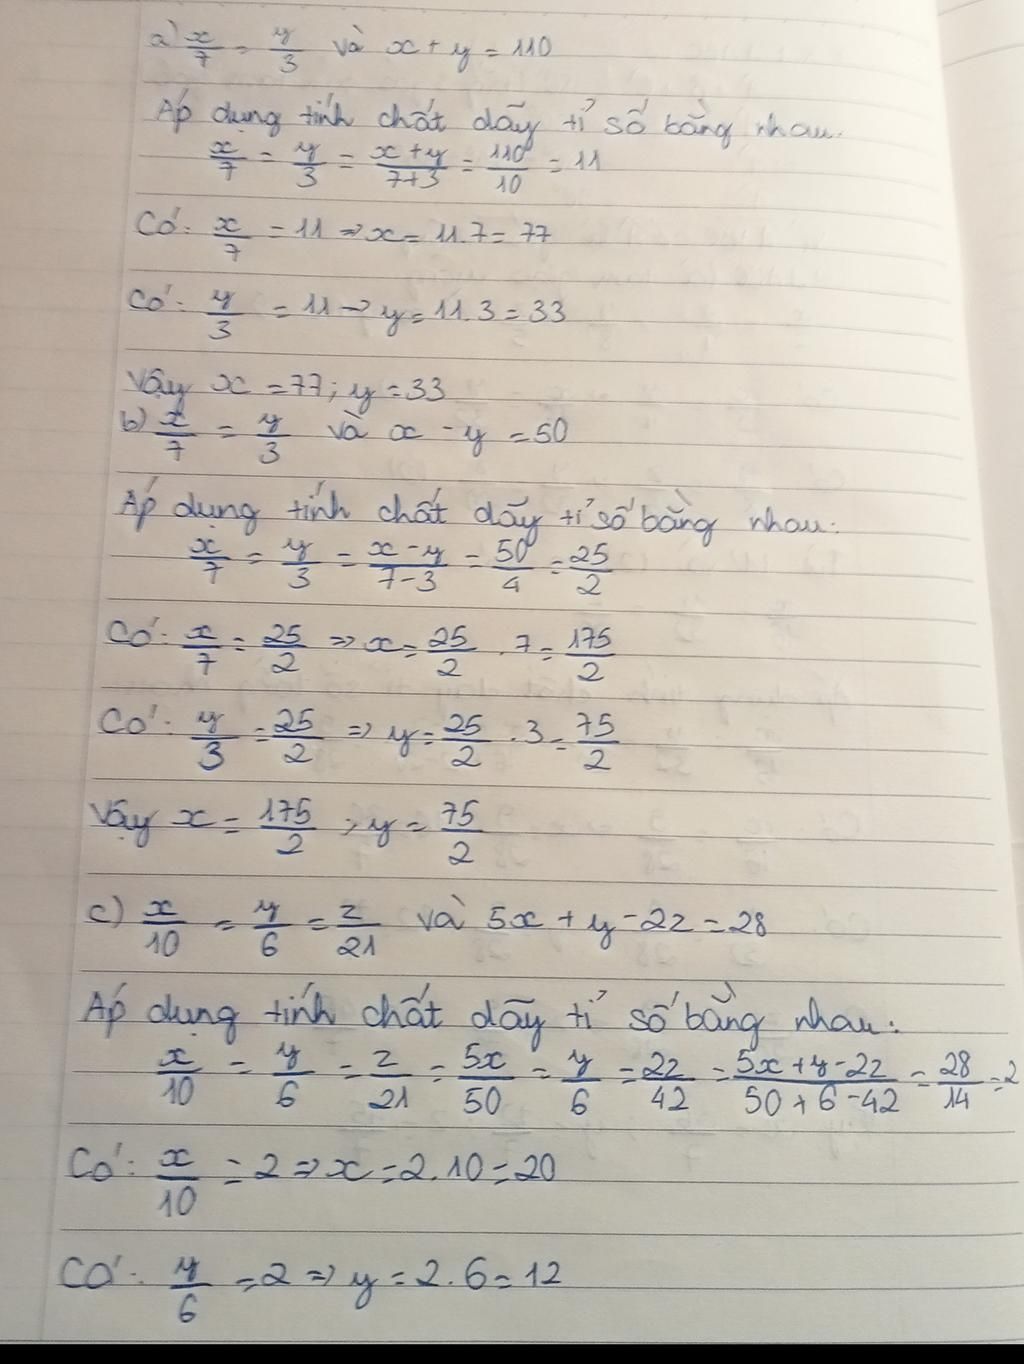 a) x/7 = y/3 và x + y = 110
Áp dụng tính chất dãy tỉ số bằng nhau:
x/7 = y/3 = (x+y)/(7+3) = 110/10 = 11
Có: x/7 = 11 => x = 11.7 = 77
Có: y/3 = 11 -> y = 11.3 = 33
Vậy x = 77; y = 33
b) x/7 = y/3 và x - y = 50
Áp dụng tính chất dãy tỉ số bằng nhau:
x/7 = y/3 = (x-y)/(7-3) = 50/4 = 25/2
Có: x/7 = 25/2 => x = 25/2 . 7 = 175/2
Có: y/3 = 25/2 => y = 25/2 . 3 = 75/2
Vậy x = 175/2 ; y = 75/2
c) x/10 = y/6 = z/21 và 5x + y - 2z = 28
Áp dụng tính chất dãy tỉ số bằng nhau:
x/10 = y/6 = z/21 = 5x/50 = y/6 = 2z/42 = (5x+y-2z)/(50+6-42) = 28/14 = 2
Có: x/10 = 2 => x = 2.10 = 20
Có: y/6 = 2 => y = 2.6 = 12